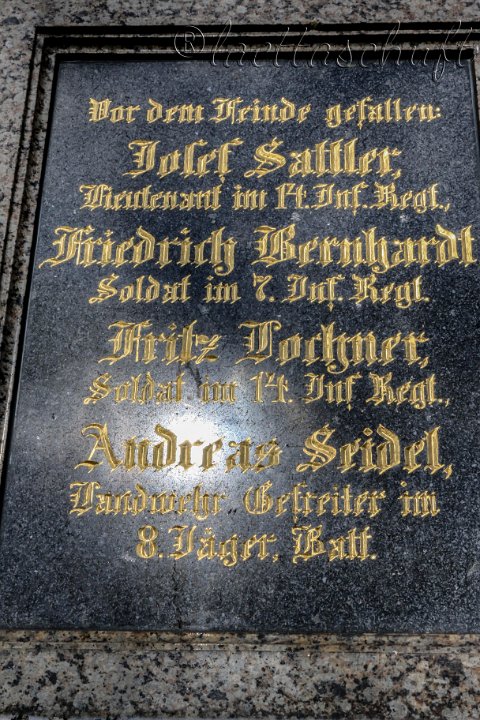 ©haettnschuft
Vor dem Feinde gefallen:
Josef Sattler,
Lieutenant im 14. Inf. Regt.,
Friedrich Bernhardt
Soldat im 7. Inf. Regt.
Fritz Lochner,
Soldat im 14. Inf Regt.,
Andreas Seidel,
Landwehr„ Gefreiter im
8. Jäger, Batt.